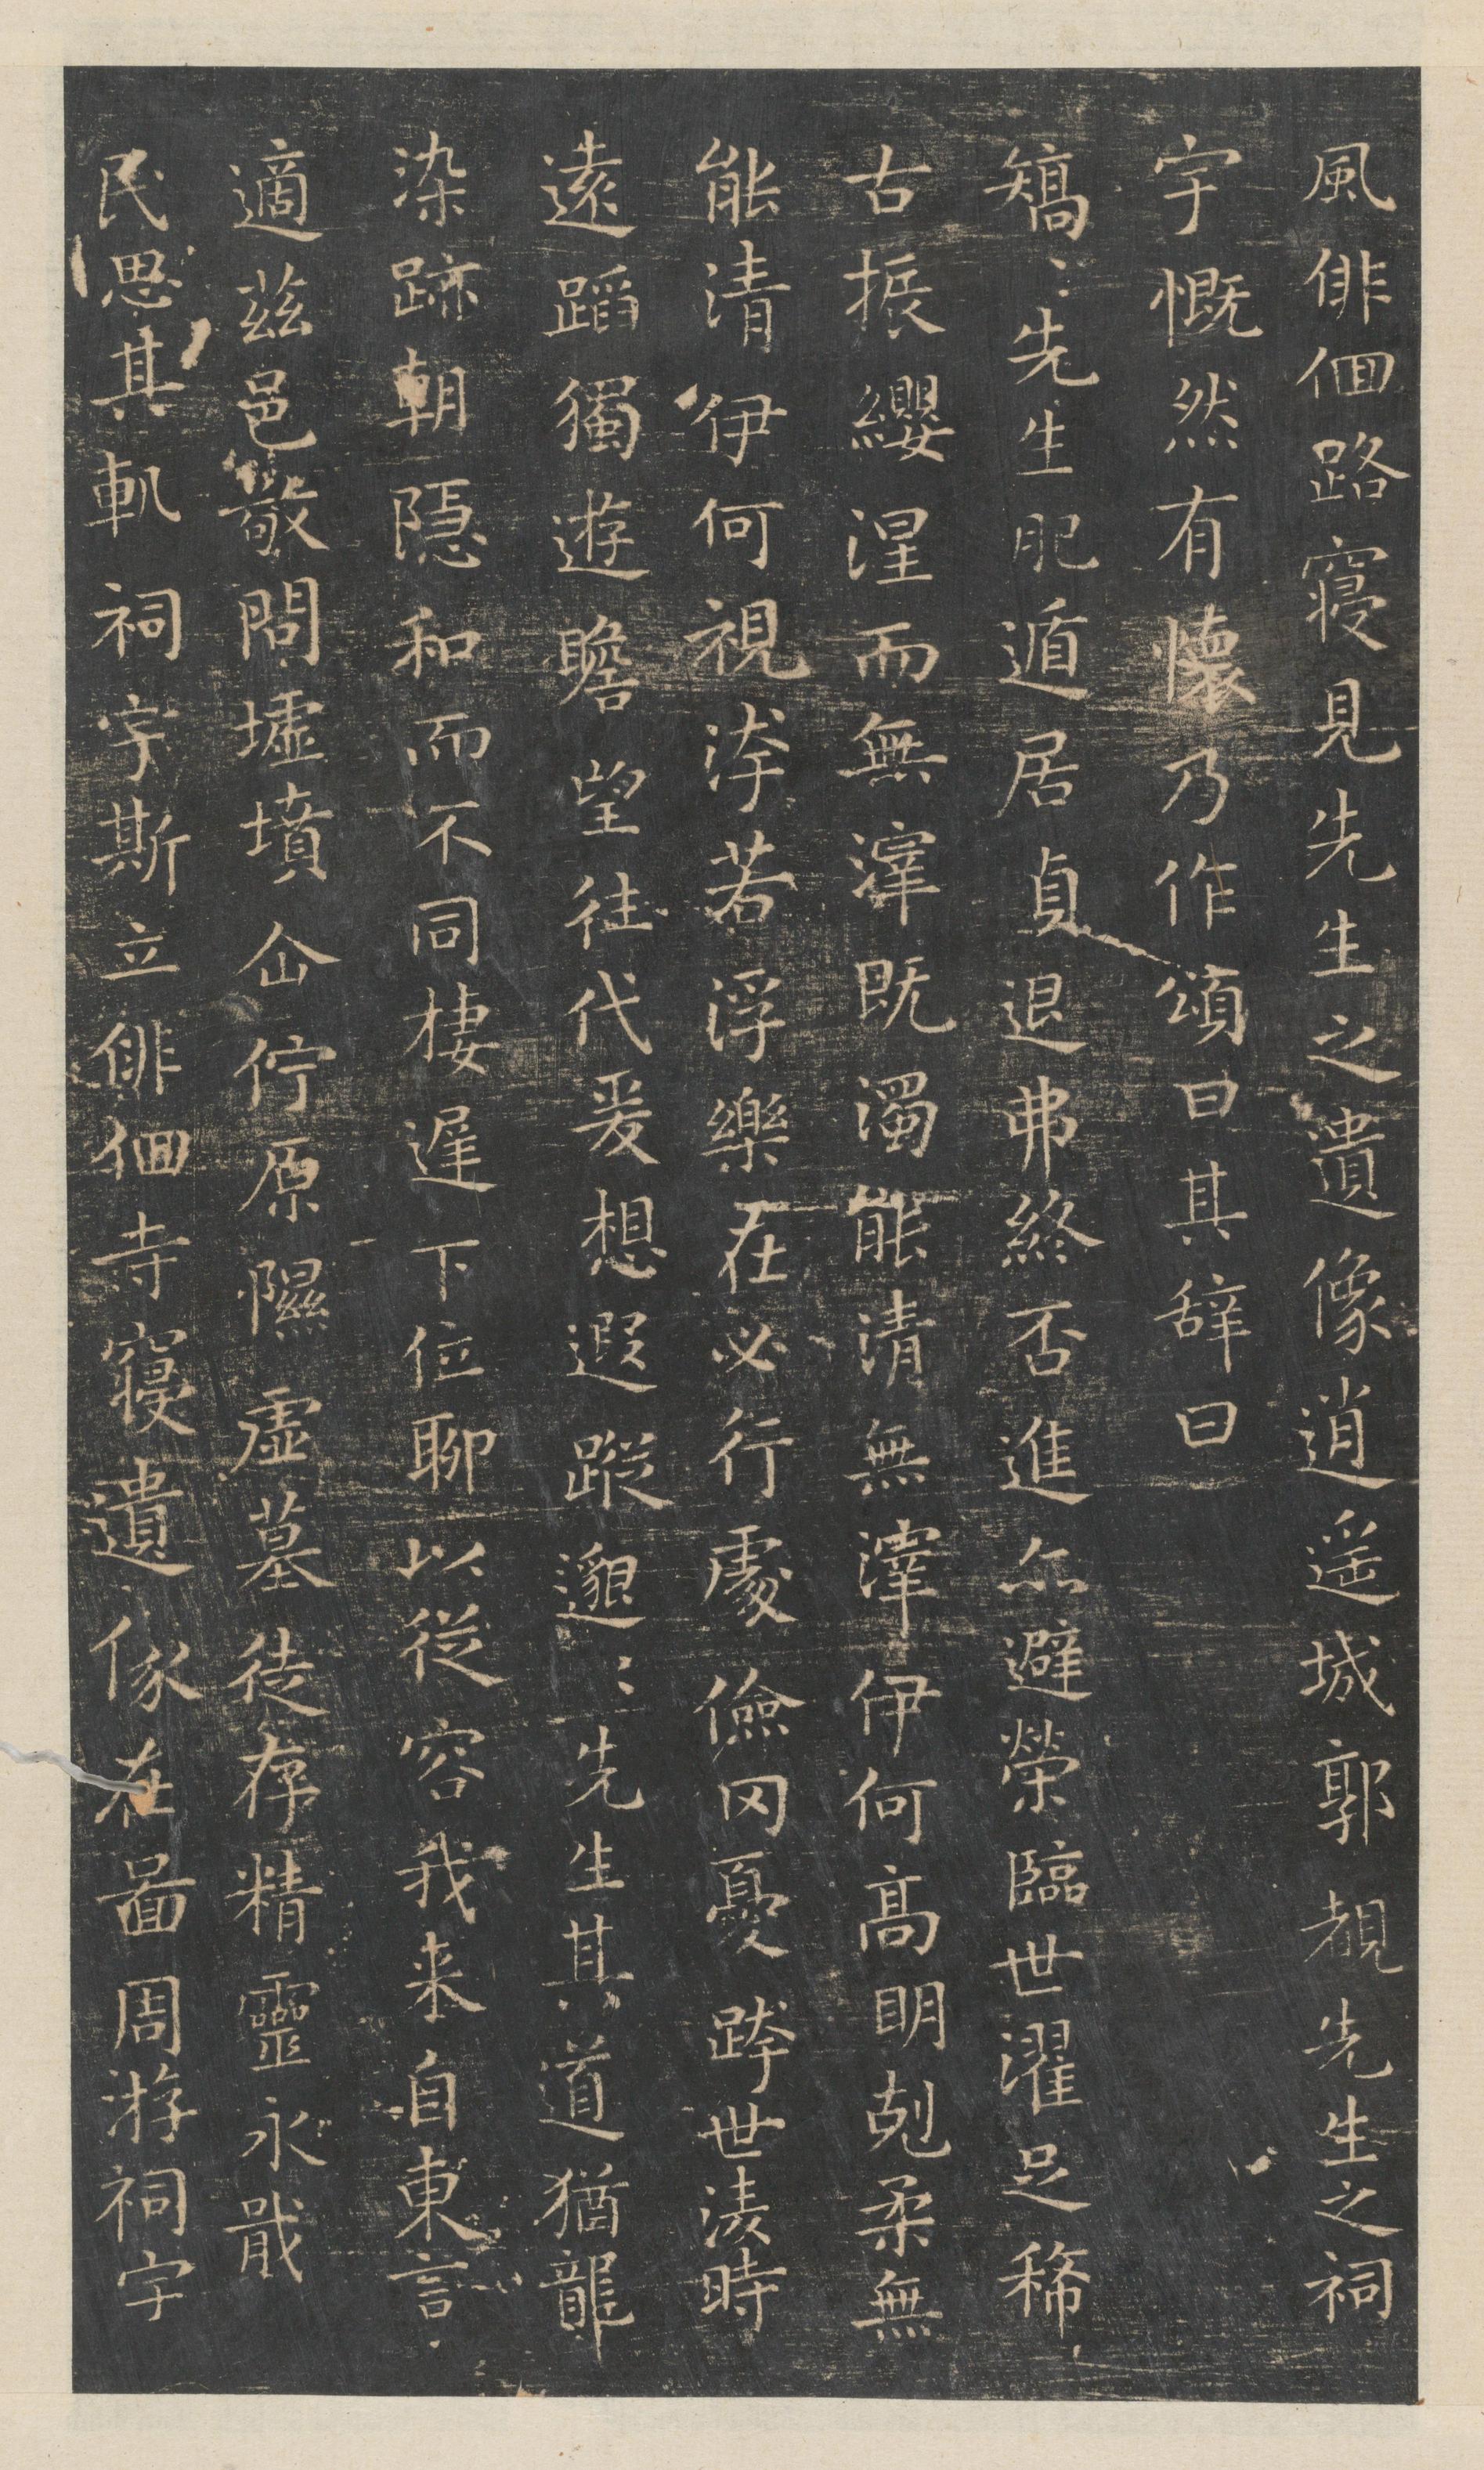 風俳佪路寑見先生之遺像逍遥城郭覩先生之祠
宇慨然有懷乃作頌曰其辞曰
矯〻先生肥遁居貞退弗終否進亦避榮臨世濯足稀
古振纓涅而無滓既濁能清無滓伊何高明剋柔無
能清伊何視洿若浮樂在必行處儉罔憂跨世淩時
遠蹈獨遊瞻望往代爰想遐蹤邈〻先生其道猶龍
染跡朝隱和而不同棲遅下位聊以從容我来自東言
適茲邑敬問墟墳企佇原隰虛墓徒存精靈永戢
民思其軌祠宇斯立俳佪寺寑遺像在啚周游祠宇